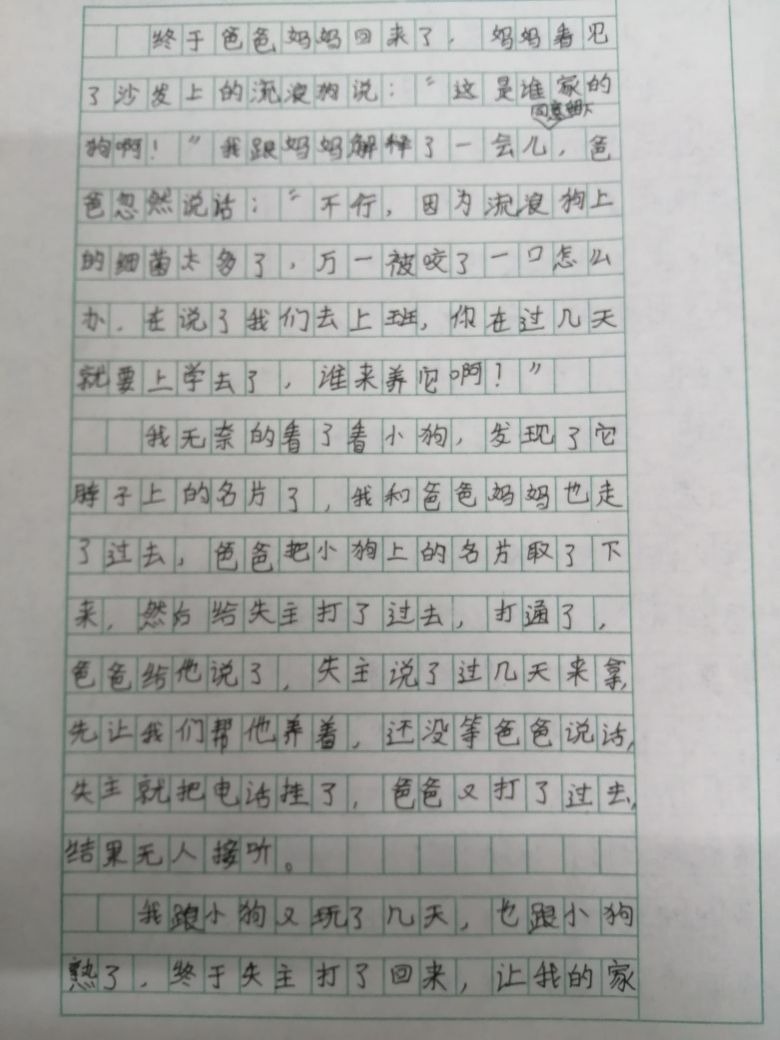 终于爸爸妈妈回来了，妈妈看见
了沙发上的流浪狗说：“这是谁家的
狗啊！”我跟妈妈解释了一会儿，爸
爸忽然说话：“不行，因为流浪狗上
的细菌太多了，万一被咬了一口怎么
办．在说了我们去上班，你在过几天
就要上学去了，谁来养它啊？”
我无奈的看了看小狗，发现了它
脖子上的名片了，我和爸爸妈妈也走
了过去，爸爸把小狗上的名片取了下
来，然后给失主打了过去，打通了，
爸爸给他说了，失主说了过几天来拿，
先让我们帮他养着，还没等爸爸说话，
失主就把电话挂了，爸爸又打了过去，
结果无人接听。
我跟小狗又玩了几天，也跟小狗
熟了，终于失主打了回来，让我的家